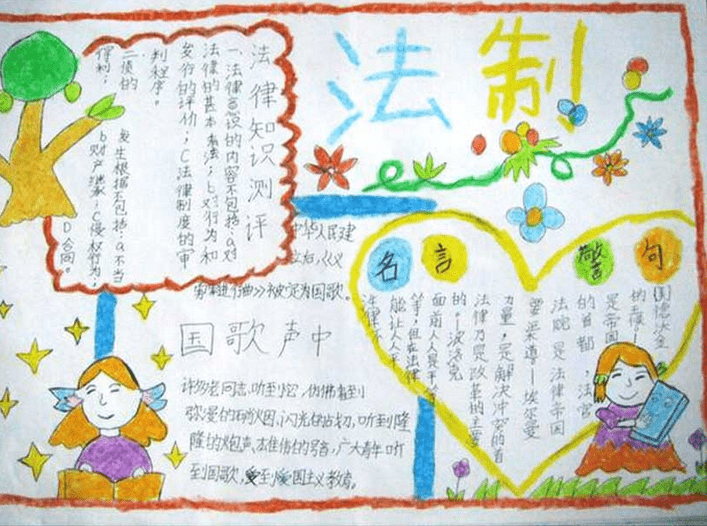 法制
法律知识测评
一、法律意识的内容不包括：a对
法律的基本看法；b对行为和
发行的评价；C法律制度的审
判程序。
二、债的
发生根据不包括：a不当
得利；
b财产继承；C侵权行为；
D合同。
中华人民
立后，《义
勇军进行曲》被定为国歌。
国歌声中
许多老同志，听到它，仿佛看到
弥漫的硝烟，闪光的战刀，听到隆
隆的炮声，雄伟的号音，广大青年听
到国歌，受到爱国主义教育。
名言警句
法院是法律帝国
的首都，法官
是帝国
力量，是解决冲突的首
要渠道——埃尔曼
法律乃是改革的主要
的。——波洛克
面前人人是平等
等；但在法律
能让人人平
法律不